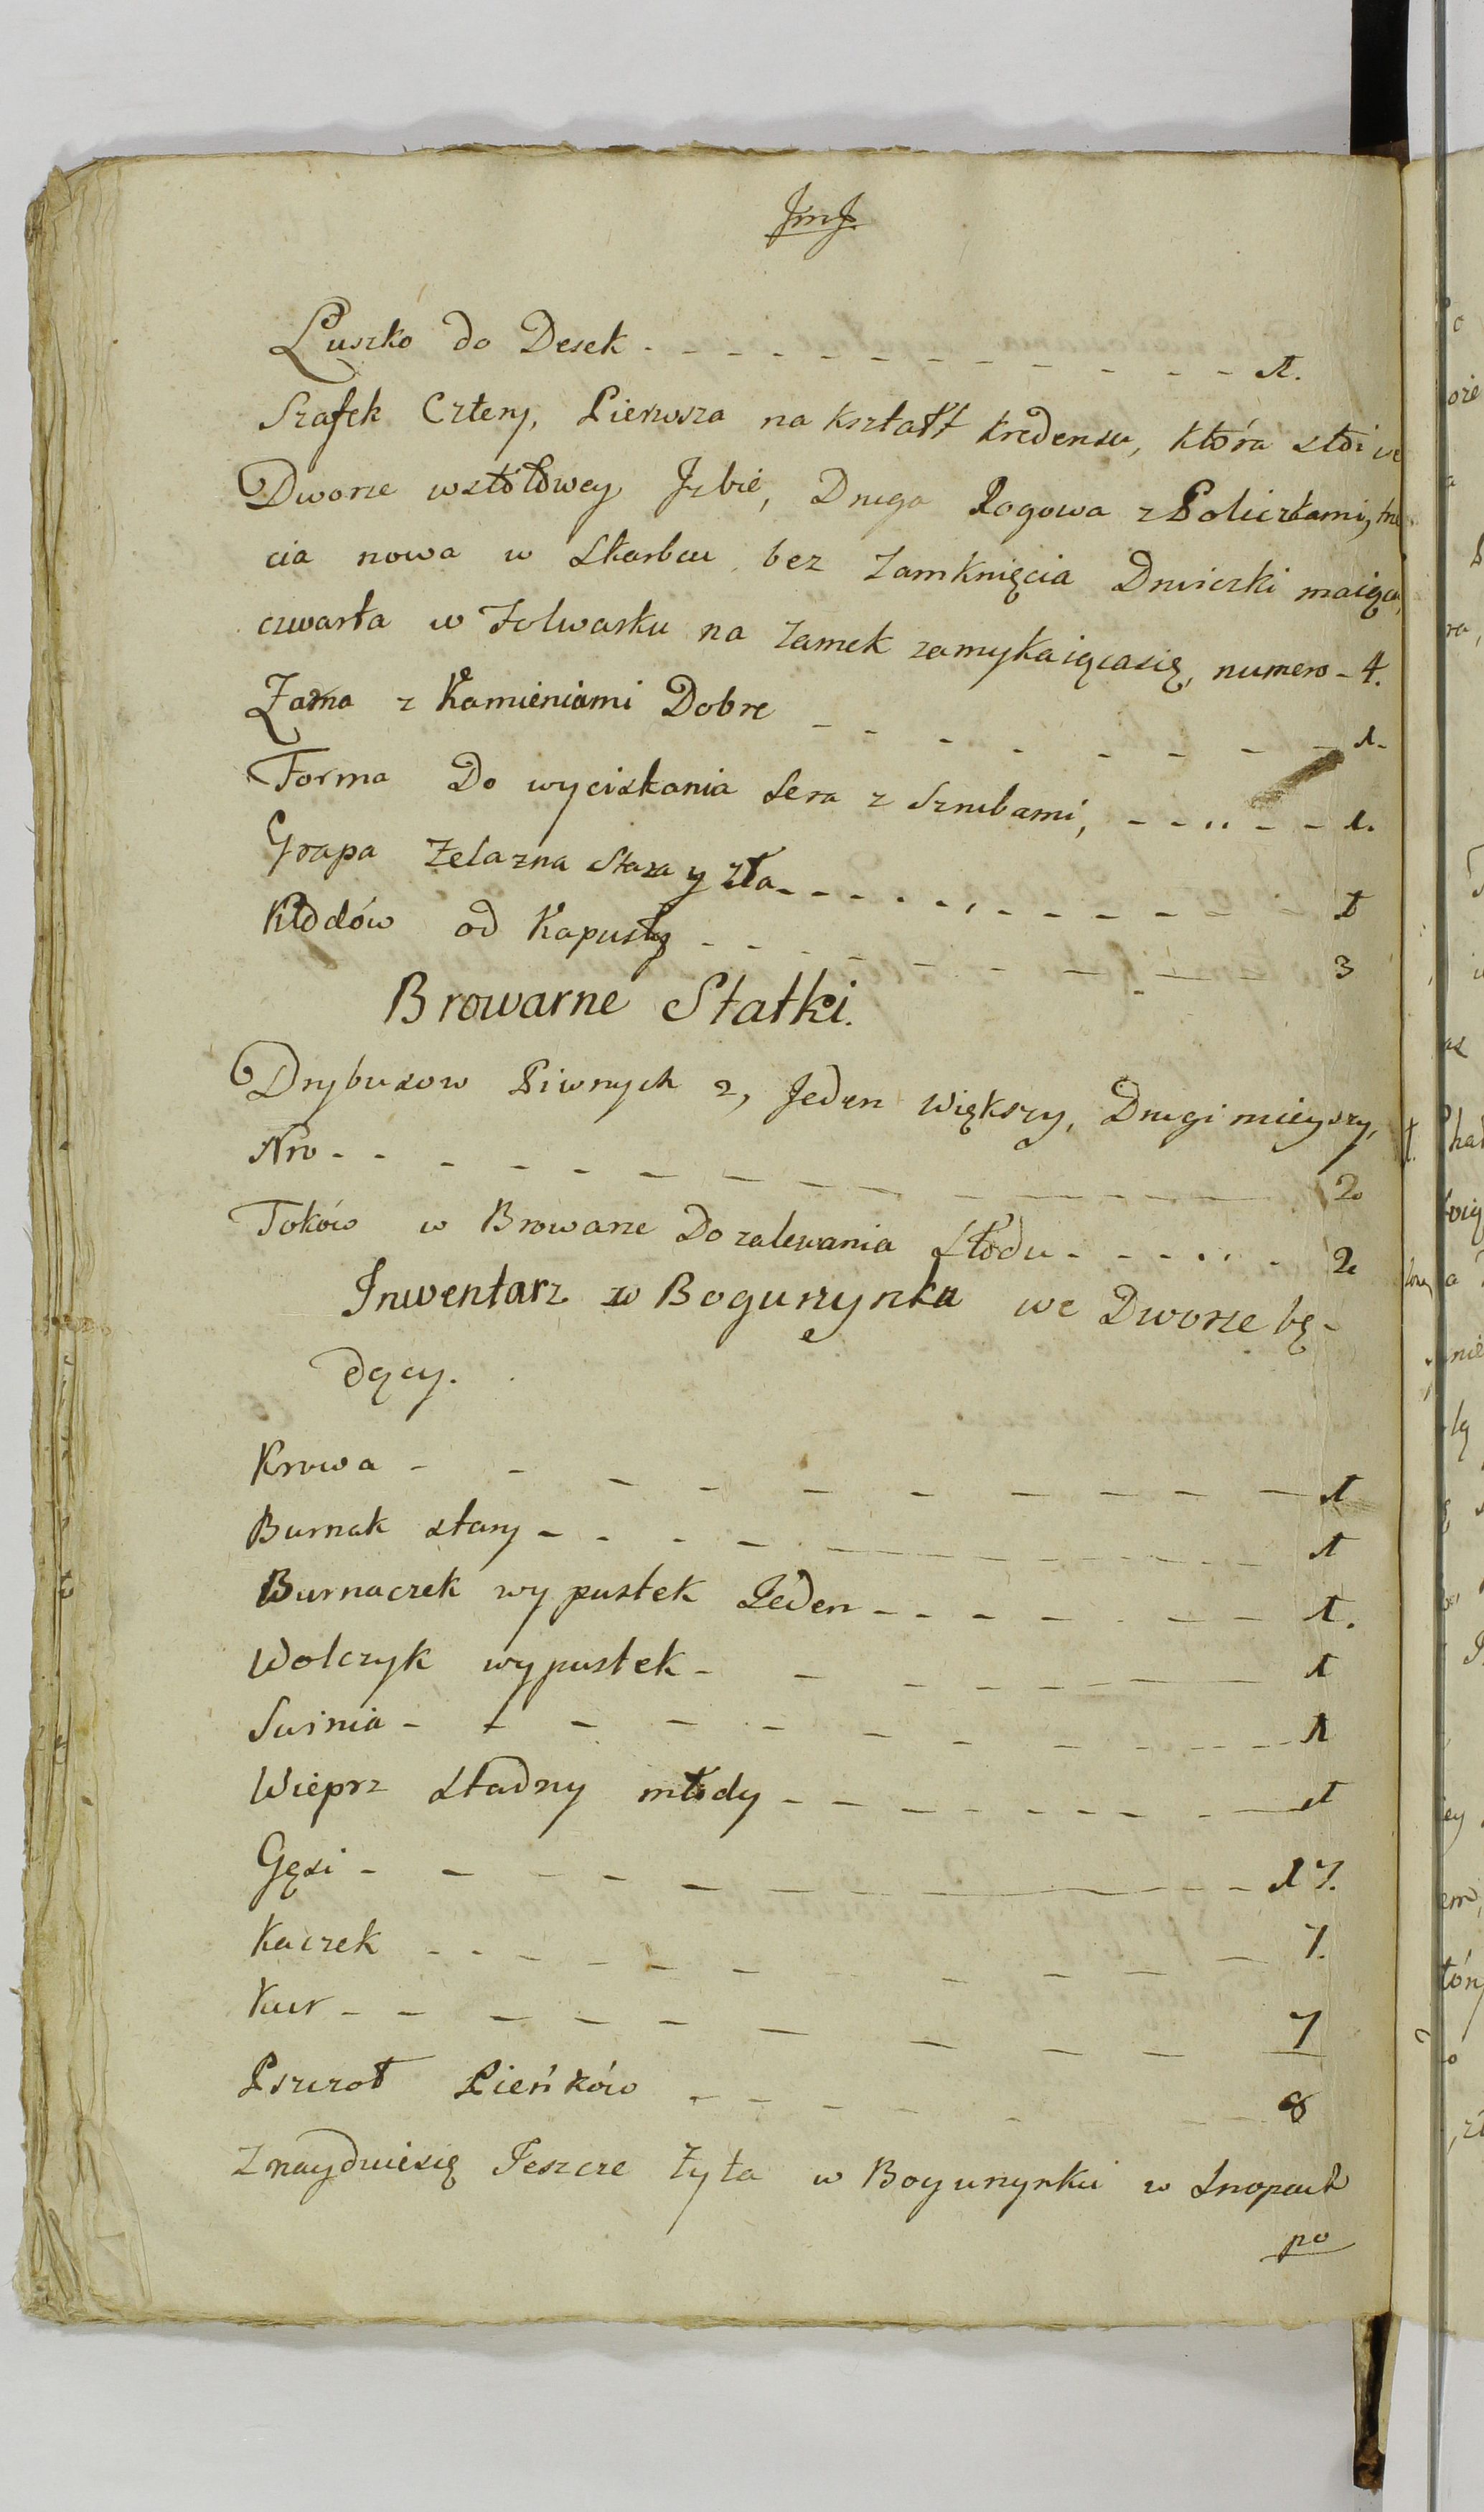 JmJ.
Łuszko do Desek - - - - - - - - - - - 1.
Szafek Cztery, Pierwsza na kształt kredensu, która stoi we
Dworze wstołowey Jzbie, Druga Rogowa z Policzkami, trze
cia nowa w Skarbcu bez Zamknięcia Drwiczki maiąca,
czwarta w Folwarku na Zamek zamykaiącasię, numero - 4.
Żarna z Kamieniami Dobre - - - - - - - - 1.
Forma Do wyciskania Sera z Szrubami, - - - - - 1.
Grapa Żelazna Stara y zła - - - - - - - - - - 1
Kłodów od Kapusty - - - - - - - - 3
Browarne Statki.
Drybusow Piwnych 2, Jeden większy, Drugi mieyszy,
Nro - - - - - - - - - - - 2
Toków w Browarze Do zalewania Słodu - - - - - - 2
Inwentarz w Bogurzynku we Dworze bę-
dący.
Krowa - - - - - - - - - 1
Burnak stary - - - - - - - - 1
Burnaczek wypustek Jeden - - - - - - - 1.
Wolczyk wypustek - - - - - - - 1
Suinia - - - - - - - - - - - 1
Wieprz Stadny młody - - - - - - - - 1
Gęsi - - - - - - - - - 17.
Kaczek - - - - - - - - - - 7.
Kur - - - - - - - - - 7
Pszczoł Pieńków - - - - - - 8
Znayduiesię Jeszcze Żyta w Bogurzynku w Snopach
po